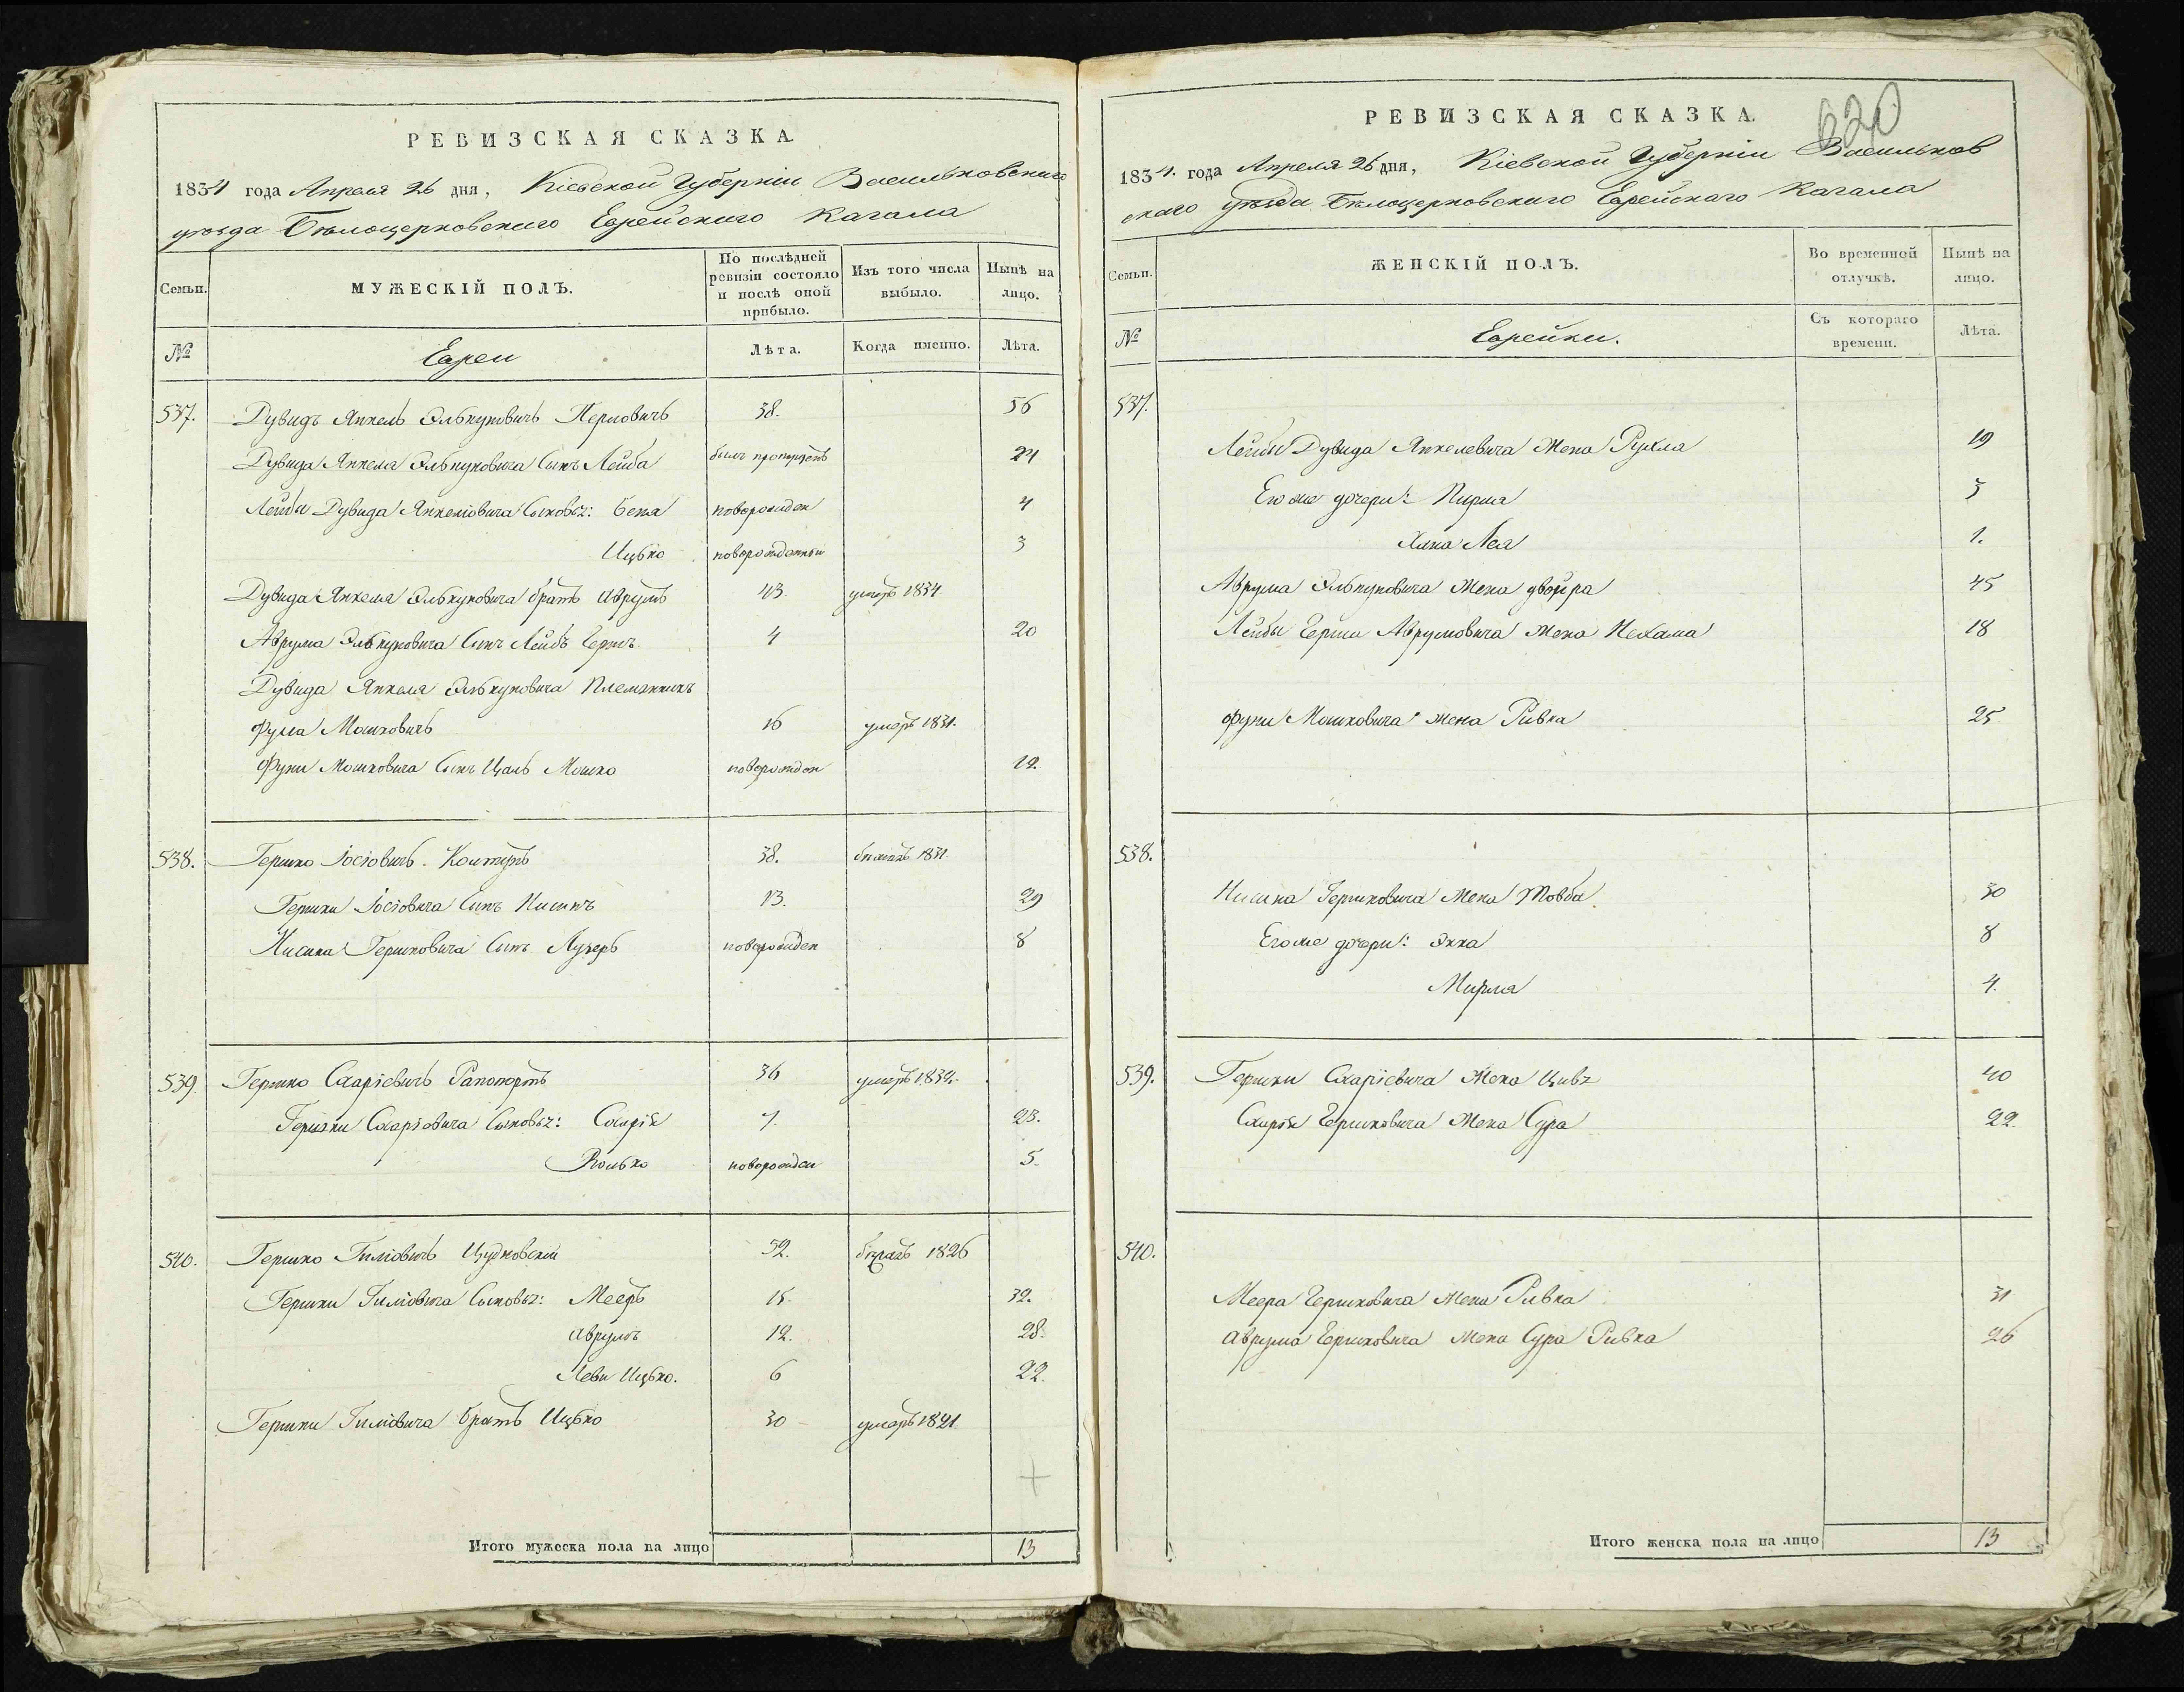 РЕВИЗСКАЯ СКАЗКА
1834 года Апреля 26 дня, Кіевской Губерніи Васильковского
уѣзда Бѣлоцерковского Еврейского Кагала
Семьи.
МУЖЕСКІЙ ПОЛЪ.
По послѣдней ревизіи состояло и послѣ оной прибыло.
Изъ того числа выбыло.
Нынѣ на лицо.
№
Евреи
Лѣта.
Когда именно.
Лѣта.
537. Дувидъ Янкель Элькуновичъ 38. 56
Дувида Янкеля Элькуновича Сынъ Лейба былъ пропущенъ 24
Лейбы Дувида Янкелiовича Сыновьz: Беня новорожден 4
Ицько новорожденный 3
Дувида Янкеля Элькуновича братъ Аврумъ 43. умеръ 1834
Аврума Элькуновича Сынъ Лейбъ Гершъ 4 20
Дувида Янкеля Элькуновича Племянникъ
Мошковичъ 16 умеръ 1831.
Фуни Мошковича Сынъ Цаль Мошко новорожден 12.
538. Гершко Іосіовичъ 38. бѣжалъ 1831
Гершки Іосіовича Сынъ Нисинъ 13. 29
Нисина Гершковича Сынъ Лузеръ новорожден 8
539. Гершко Схаріевичъ Рапопортъ 36 умеръ 1832.
Гершки Схаріовича Сыновьz: Схарія 7. 23.
Волько новорожден 5.
540. Гершко Гиліовичъ 52. бѣжалъ 1826
Гершки Гиліовича Сыновьz: Мееръ 15. 32.
Аврумъ 12. 28.
Леви Ицько. 6 22.
Гершки Гиліовича братъ Ицько 30 умеръ 1821.
Итого мужеска пола на лицо 13
РЕВИЗСКАЯ СКАЗКА. 620
1834. года Апреля 26 дня, Кіевской Губерніи Васильков
скаго уѣзда Бѣлоцерковскиго Еврейскаго Кагала
Семьи.
ЖЕНСКІЙ ПОЛЪ.
Во временной отлучкѣ.
Нынѣ на лицо.
№
Еврейки.
Съ котораго времени.
Лѣта.
537.
Лейбы Дувида Янкелевича Жена Рухля 19
Его же дочери: Пирля 3
Хана Лея 1.
Аврума Элькуновича Жена двойра 45
Лейбы Герша Аврумовича Жена Нехама 18
Фуни Мошковича жена Ривка 25
538.
Нисина Гершковича Жена Товба 30
Его же дочери: Энка 8
Мирля 4.
539. Гершки Схаріевича Жена Цивz 40
Схаріи Гершковича Жена Сура 22
540.
Меера Гершковича Жена Ривка 31
Аврума Гершковича Жена Сура Ривка 26
Итого женска пола на лицо 13